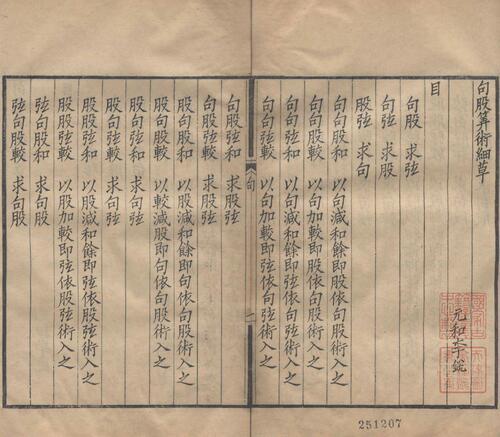 句股筭術細草
元和李銳
目
句股　求弦
句弦　求股
股弦　求句
句句股和　以句減和餘即股依句股術入之
句句股較　以句加較即股依句股術入之
句句弦和　以句減和餘即弦依句弦術入之
句句弦較　以句加較即弦依句弦術入之
句
一
句股弦和　求股弦
句股弦較　求股弦
股句股和　以股減和餘即句依句股術入之
股句股較　以較減股即句依句股術入之
股句弦和　求句弦
股句弦較　求句弦
股股弦和　以股減和餘即弦依股弦術入之
股股弦較　以股加較即弦依股弦術入之
弦句股和　求句股
弦句股較　求句股
251207